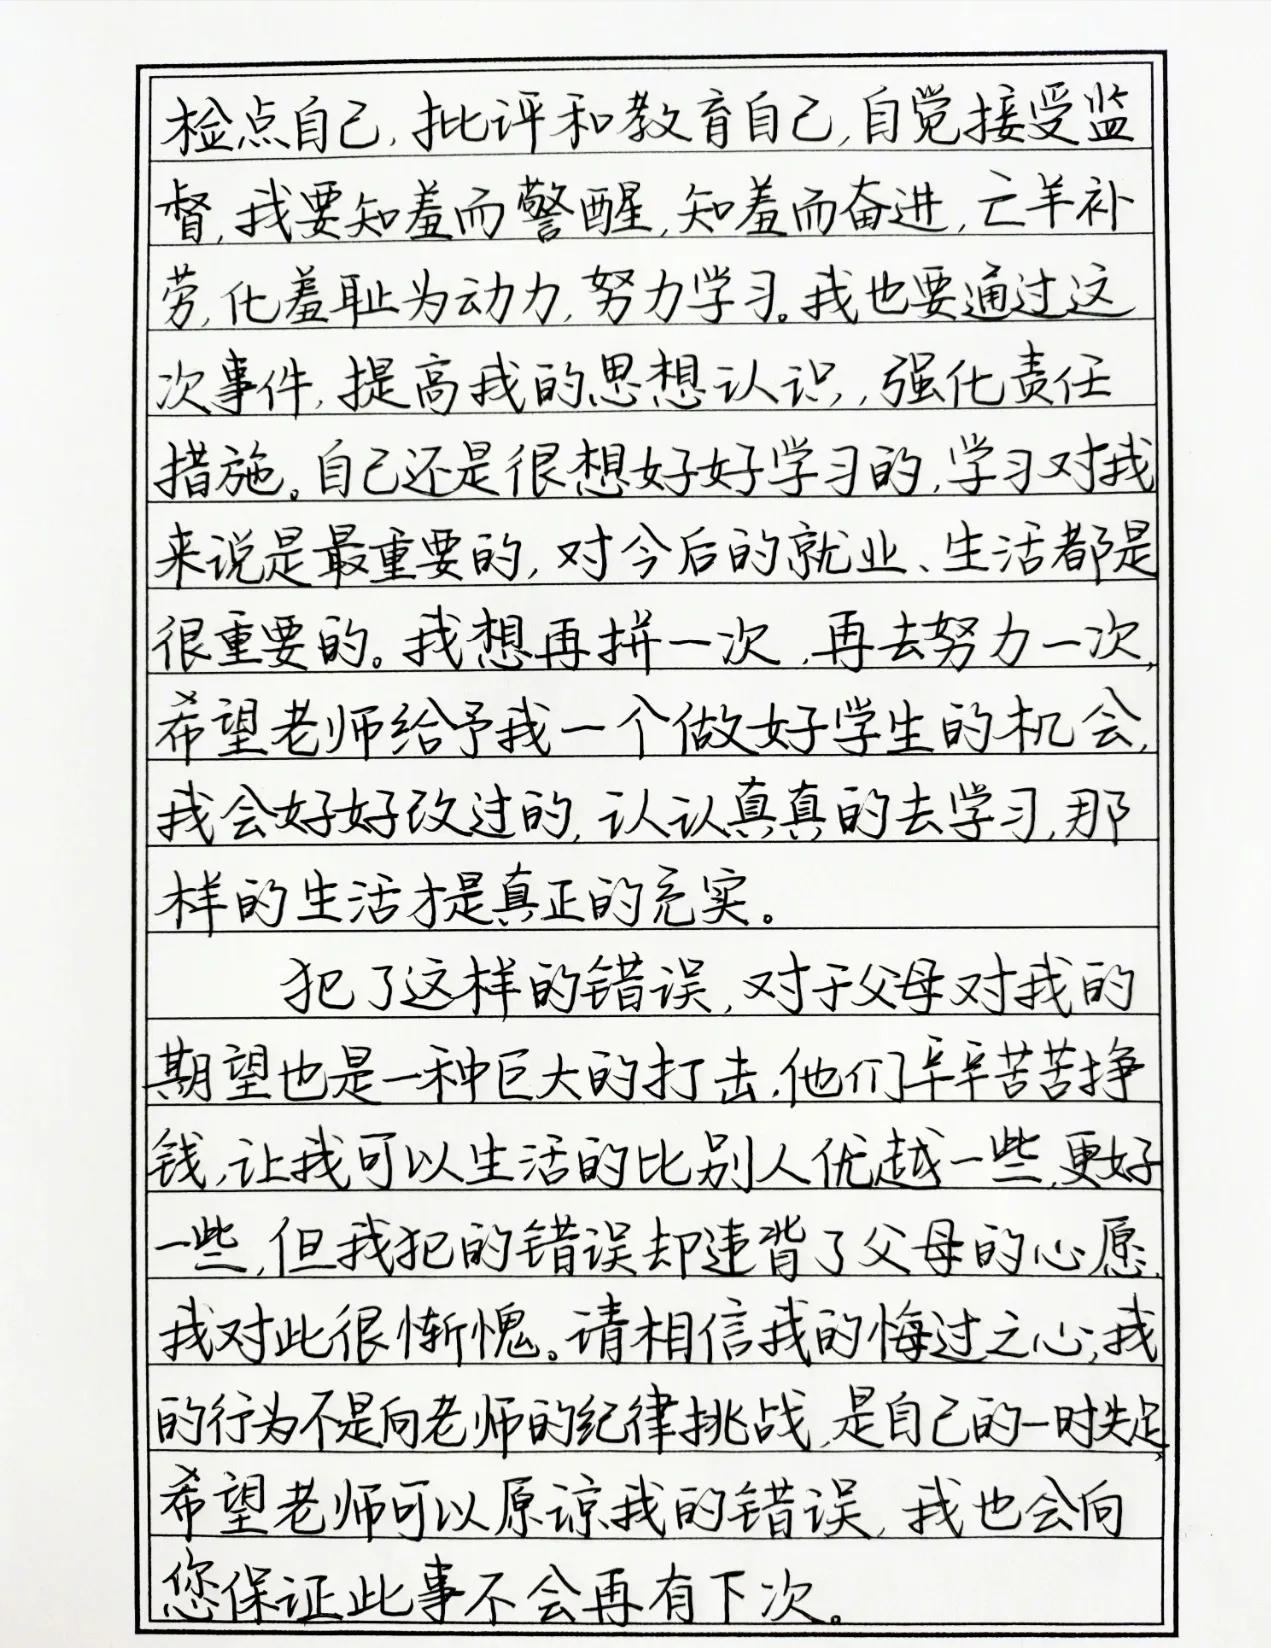 检点自己,批评和教育自己,自觉接受监
督,我要知羞而警醒,知羞而奋进,亡羊补
劳,化羞耻为动力,努力学习。我也要通过这
次事件,提高我的思想认识,,强化责任
措施。自己还是很想好好学习的,学习对我
来说是最重要的,对今后的就业、生活都是
很重要的。我想再拼一次,再去努力一次,
希望老师给予我一个做好学生的机会,
我会好好改过的,认认真真的去学习,那
样的生活才是真正的充实。
犯了这样的错误,对于父母对我的
期望也是一种巨大的打击,他们辛辛苦苦挣
钱,让我可以生活的比别人优越一些,更好
一些,但我犯的错误却违背了父母的心愿,
我对此很惭愧。请相信我的悔过之心;我
的行为不是向老师的纪律挑战,是自己的一时失足,
希望老师可以原谅我的错误,我也会向
您保证此事不会再有下次。